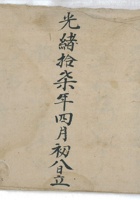 光緒拾柒年四月初八日立